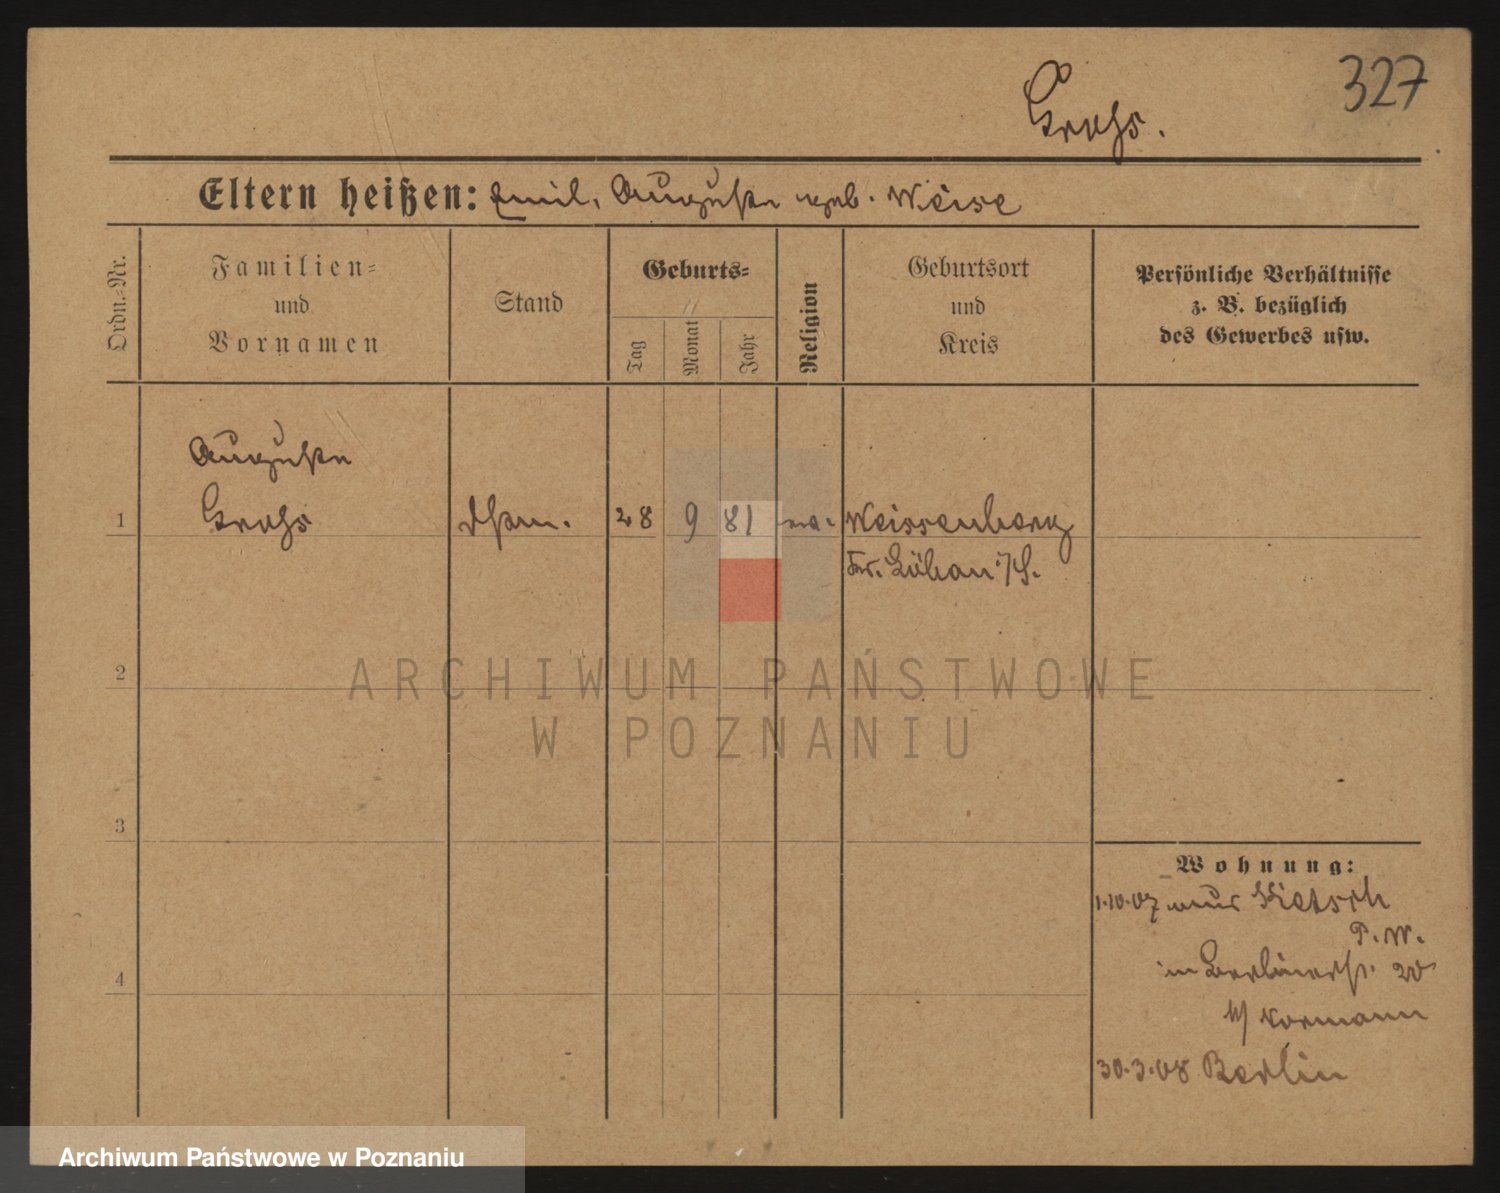 327
Grohs.
Eltern heißen: Emil, Auguste geb. Weise
Ordn.-Nr.
Familien-
und
Vornamen
Stand
Geburts-
Tag
Monat
Jahr
Religion
Geburtsort
und
Kreis
Persönliche Verhältnisse
z. B. bezüglich
des Gewerbes usw.
Auguste
1 Grohs 28 9 81 Weissenberg
Kr. Löbau i/S.
2
ARCHIWUM PAŃSTWOWE
W POZNANIU
3
Wohnung:
1.10.07 aus
P. W.
in Berlinerstr. 20
b/ Kormann
4
30.3.08 Berlin
Archiwum Państwowe w Poznaniu